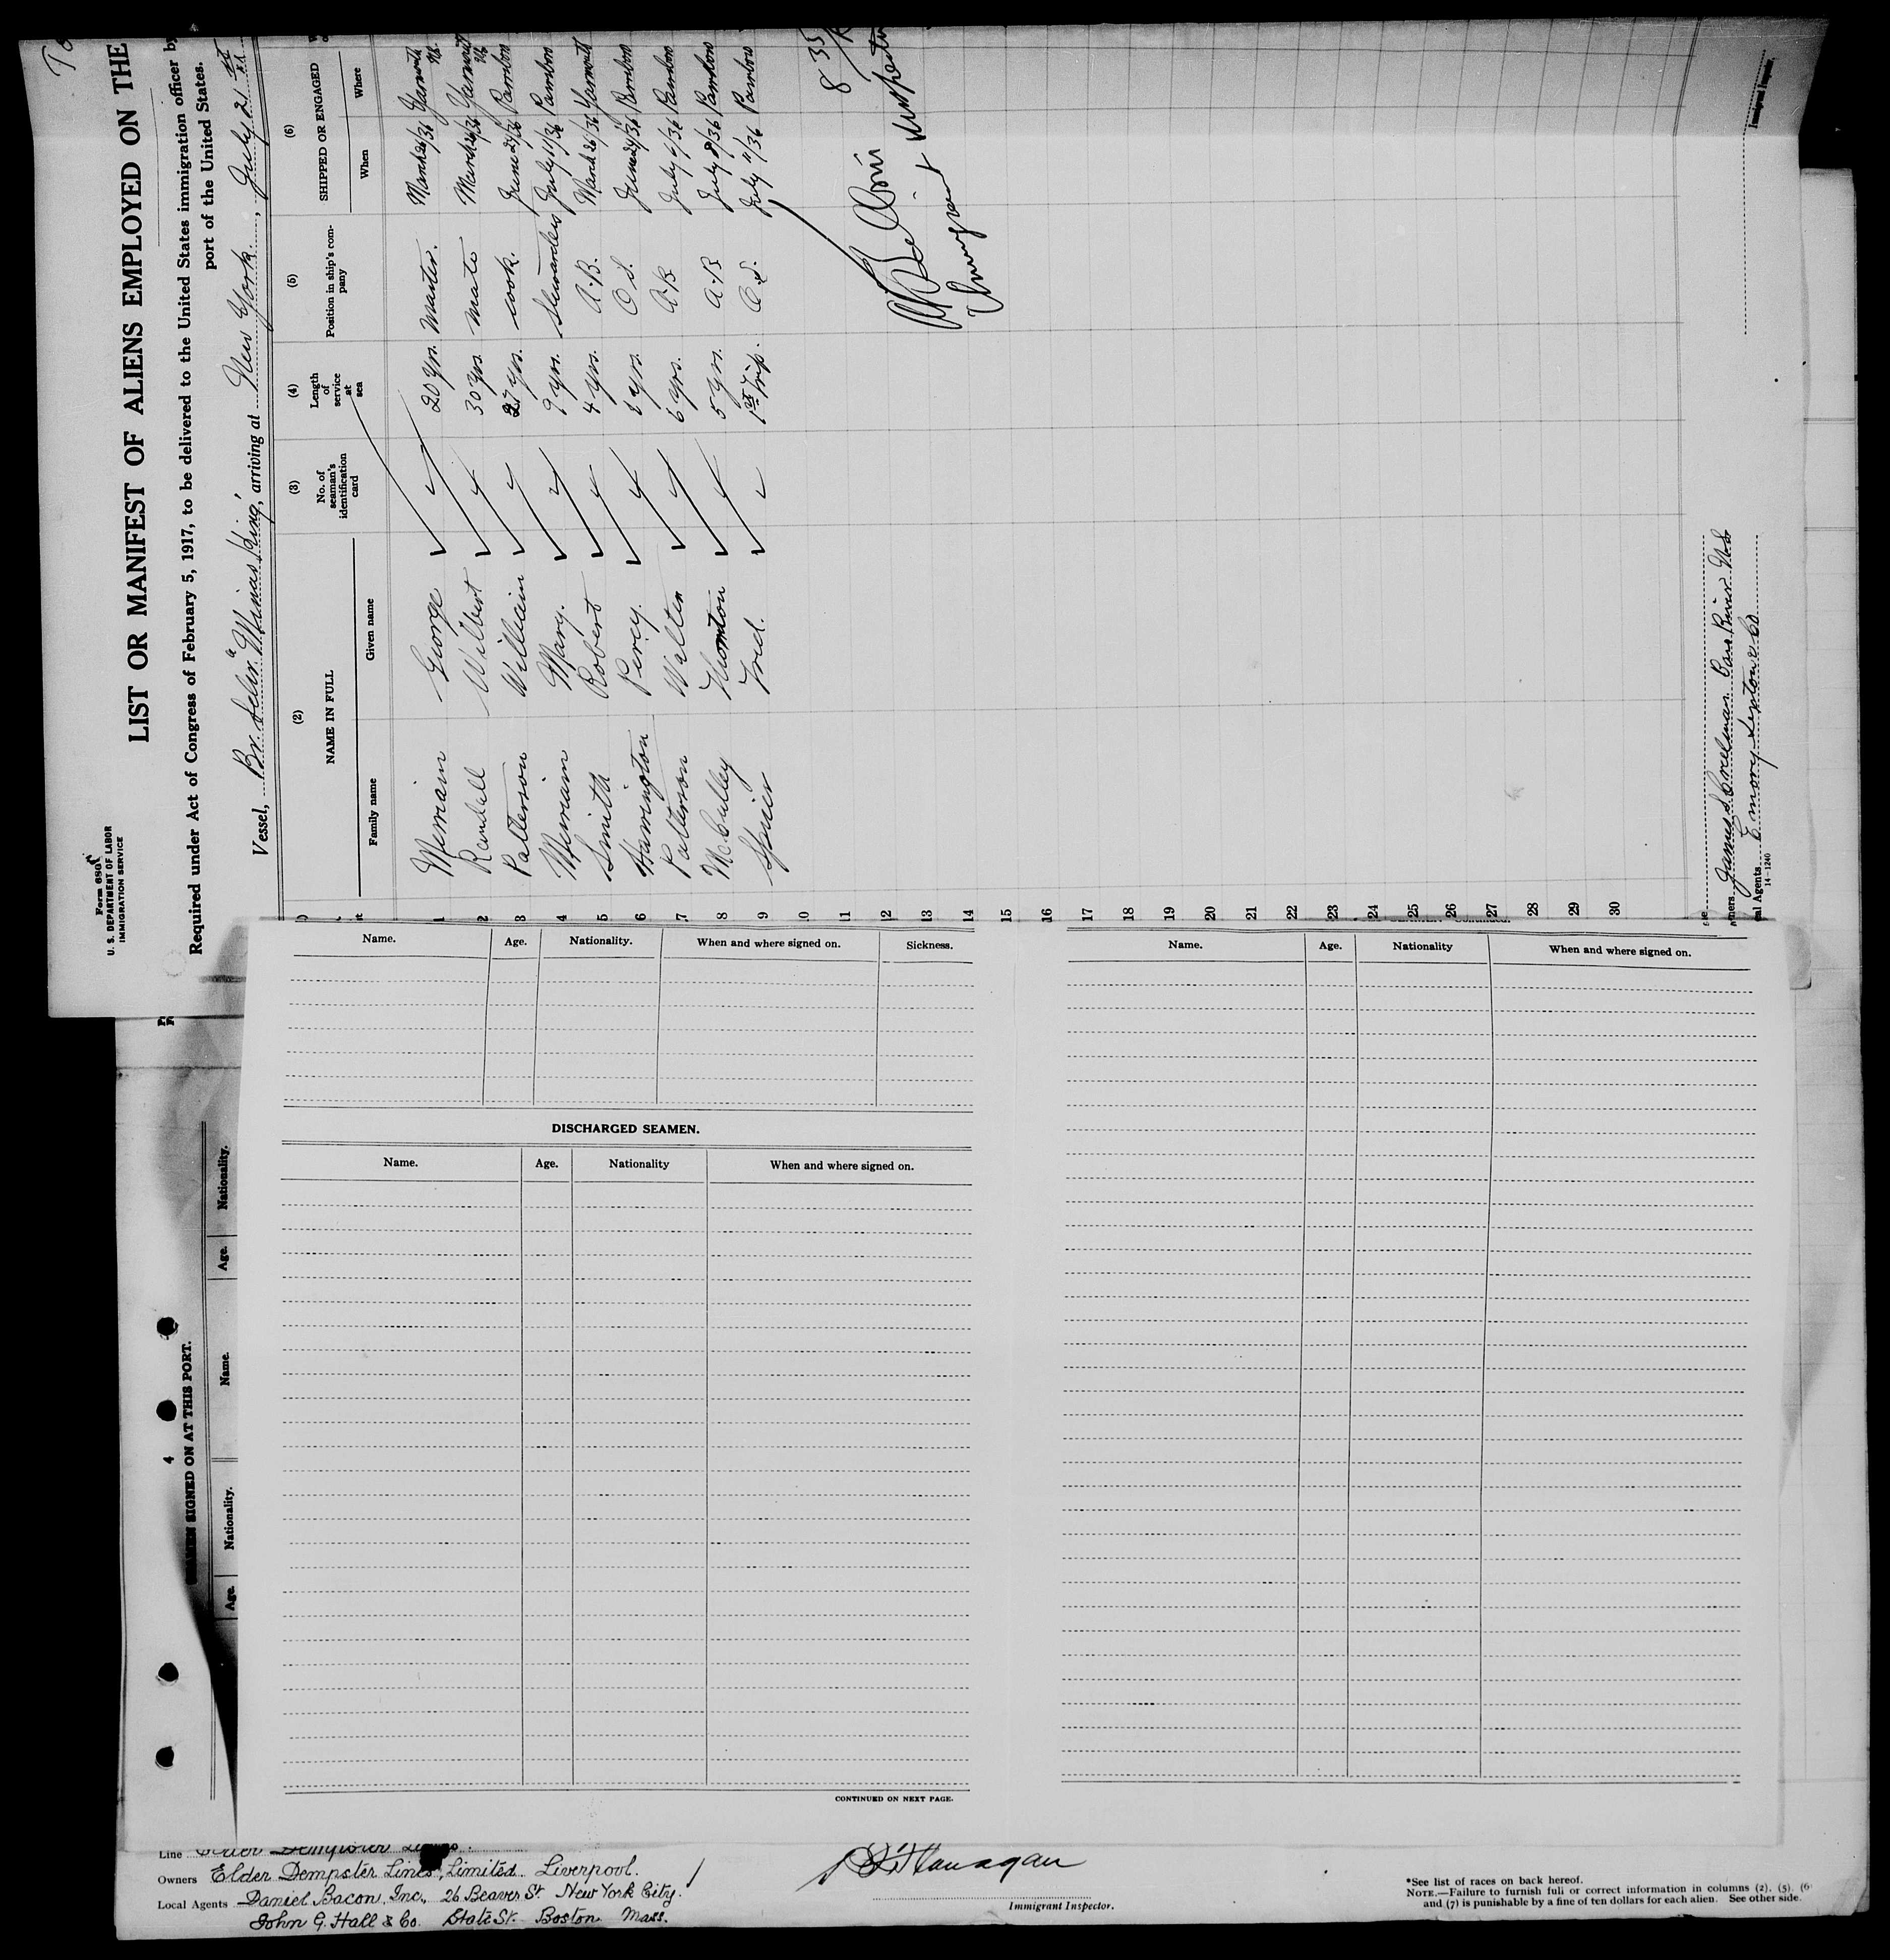 Form 680
U. S. DEPARTMENT OF LABOR
IMMIGRATION SERVICE
LIST OR MANIFEST OF ALIENS EMPLOYED ON THE
Required under Act of Congress of February 5, 1917, to be delivered to the United States immigration officer by
port of the United States.
Vessel, Br. Schr. "Minas King", arriving at New York, July 21
(2) (3) (4) (5) (6)
NAME IN FULL No. of seaman's identification card Length of service at sea Position in ship's company SHIPPED OR ENGAGED
Family name Given name When Where
1 Merriam George 20 yrs. Master. March 26/36 Yarmouth N.S.
2 Randell Wilbert 30 yrs mate March 26/36 Yarmouth N.S.
3 Patterson William 27 yrs. cook. June 29/36 Parrsboro
4 Merriam Mary. 9 yrs. Stewardess July 11/36 Parrsboro
5 Smith Robert 4 yrs. A.B. March 26/36 Yarmouth
6 Harrington Percy. yrs. O.S. June 29/36 Parrsboro
7 Patterson Walter 6 yrs. A.B. July 6/36 Parrsboro
8 McCulley Thornton 5 yrs. A.B July 8/36 Parrsboro
9 Spicer Fred. 1st Trip. O.S. July 11/36 Parrsboro
8 35
Immigrant Inspector
10
11
12
13
14
15
16
17
18
19
20
21
22
23
24
25
26
27
28
29
30
Immigrant Inspector.
James S. Creelman. Bass River N.S
al Agents Emory Sexton & Co
14-1240
Name. Age. Nationality. When and where signed on. Sickness.
DISCHARGED SEAMEN.
Name. Age. Nationality When and where signed on.
CONTINUED ON NEXT PAGE.
Name. Age. Nationality When and where signed on.
4
SEAMEN SIGNED ON AT THIS PORT.
Age. Nationality. Name. Age. Nationality.
Line Elder Dempster Lines.
Owners Elder Dempster Lines, Limited. Liverpool.
Local Agents Daniel Bacon, Inc., 26 Beaver St. New York City.
John G. Hall & Co. State St. Boston Mass.
Flanagan
Immigrant Inspector.
*See list of races on back hereof.
NOTE.—Failure to furnish full or correct information in columns (2), (5), (6
and (7) is punishable by a fine of ten dollars for each alien. See other side.